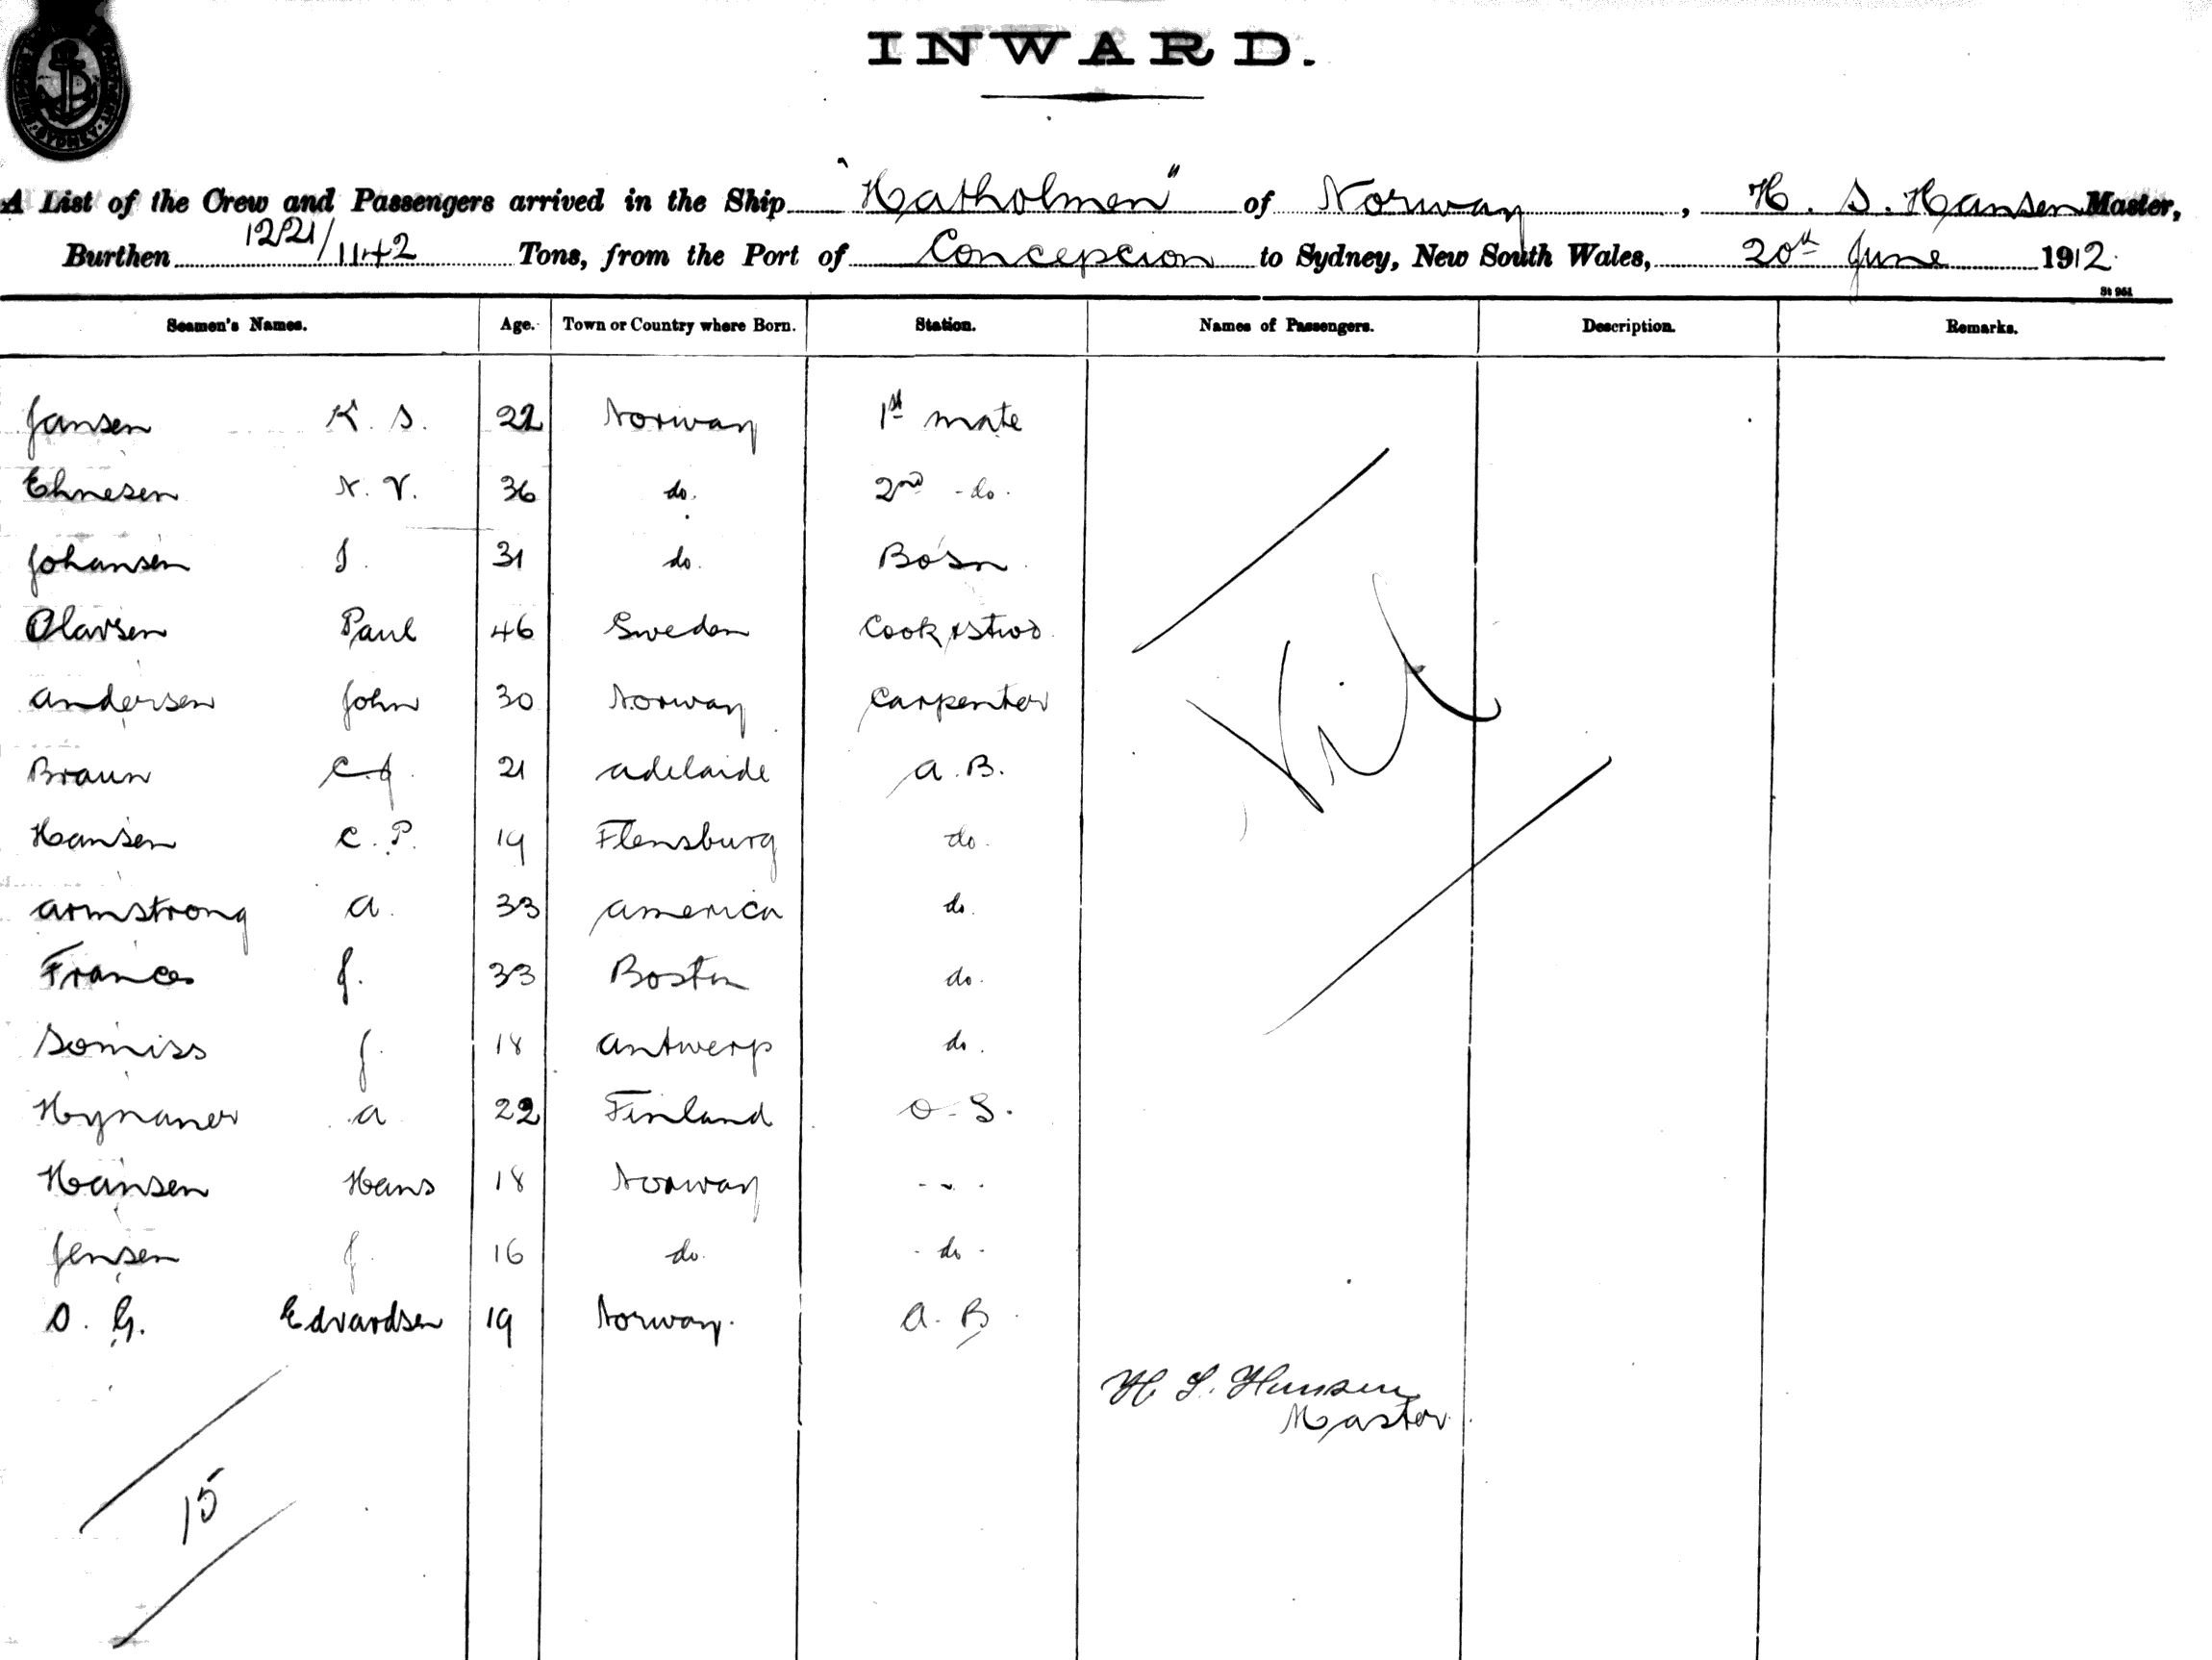 INWARD.
A List of the Crew and Passengers arrived in the Ship "Hatholmen" of Norway, H. S. Hansen Master,
Burthen 1221/1142 Tons, from the Port of Concepcion to Sydney, New South Wales, 20th June 1912.
St 961
Seamen's Names. Age. Town or Country where Born. Station. Names of Passengers. Description. Remarks.
Jansen K. S. 22 Norway 1st mate
Ehnesen N. V. 36 do. 2nd - do.
Johansen I. 31 do. Bo'sn
Olavsen Paul 46 Sweden Cook & stwd
Andersen John 30 Norway Carpenter
Nil
Braun C. J. 21 Adelaide A. B.
Hansen C. P. 19 Flensburg do.
Armstrong A. 33 America do.
Frances J. 33 Boston do.
Somiss J. 18 Antwerp do.
Hynaner A 22 Finland O. S.
Hansen Hans 18 Norway - " -
Jensen J. 16 do. - do -
O. G. Edvardsen 19 Norway. A. B.
H. S. Hansen
Master
15